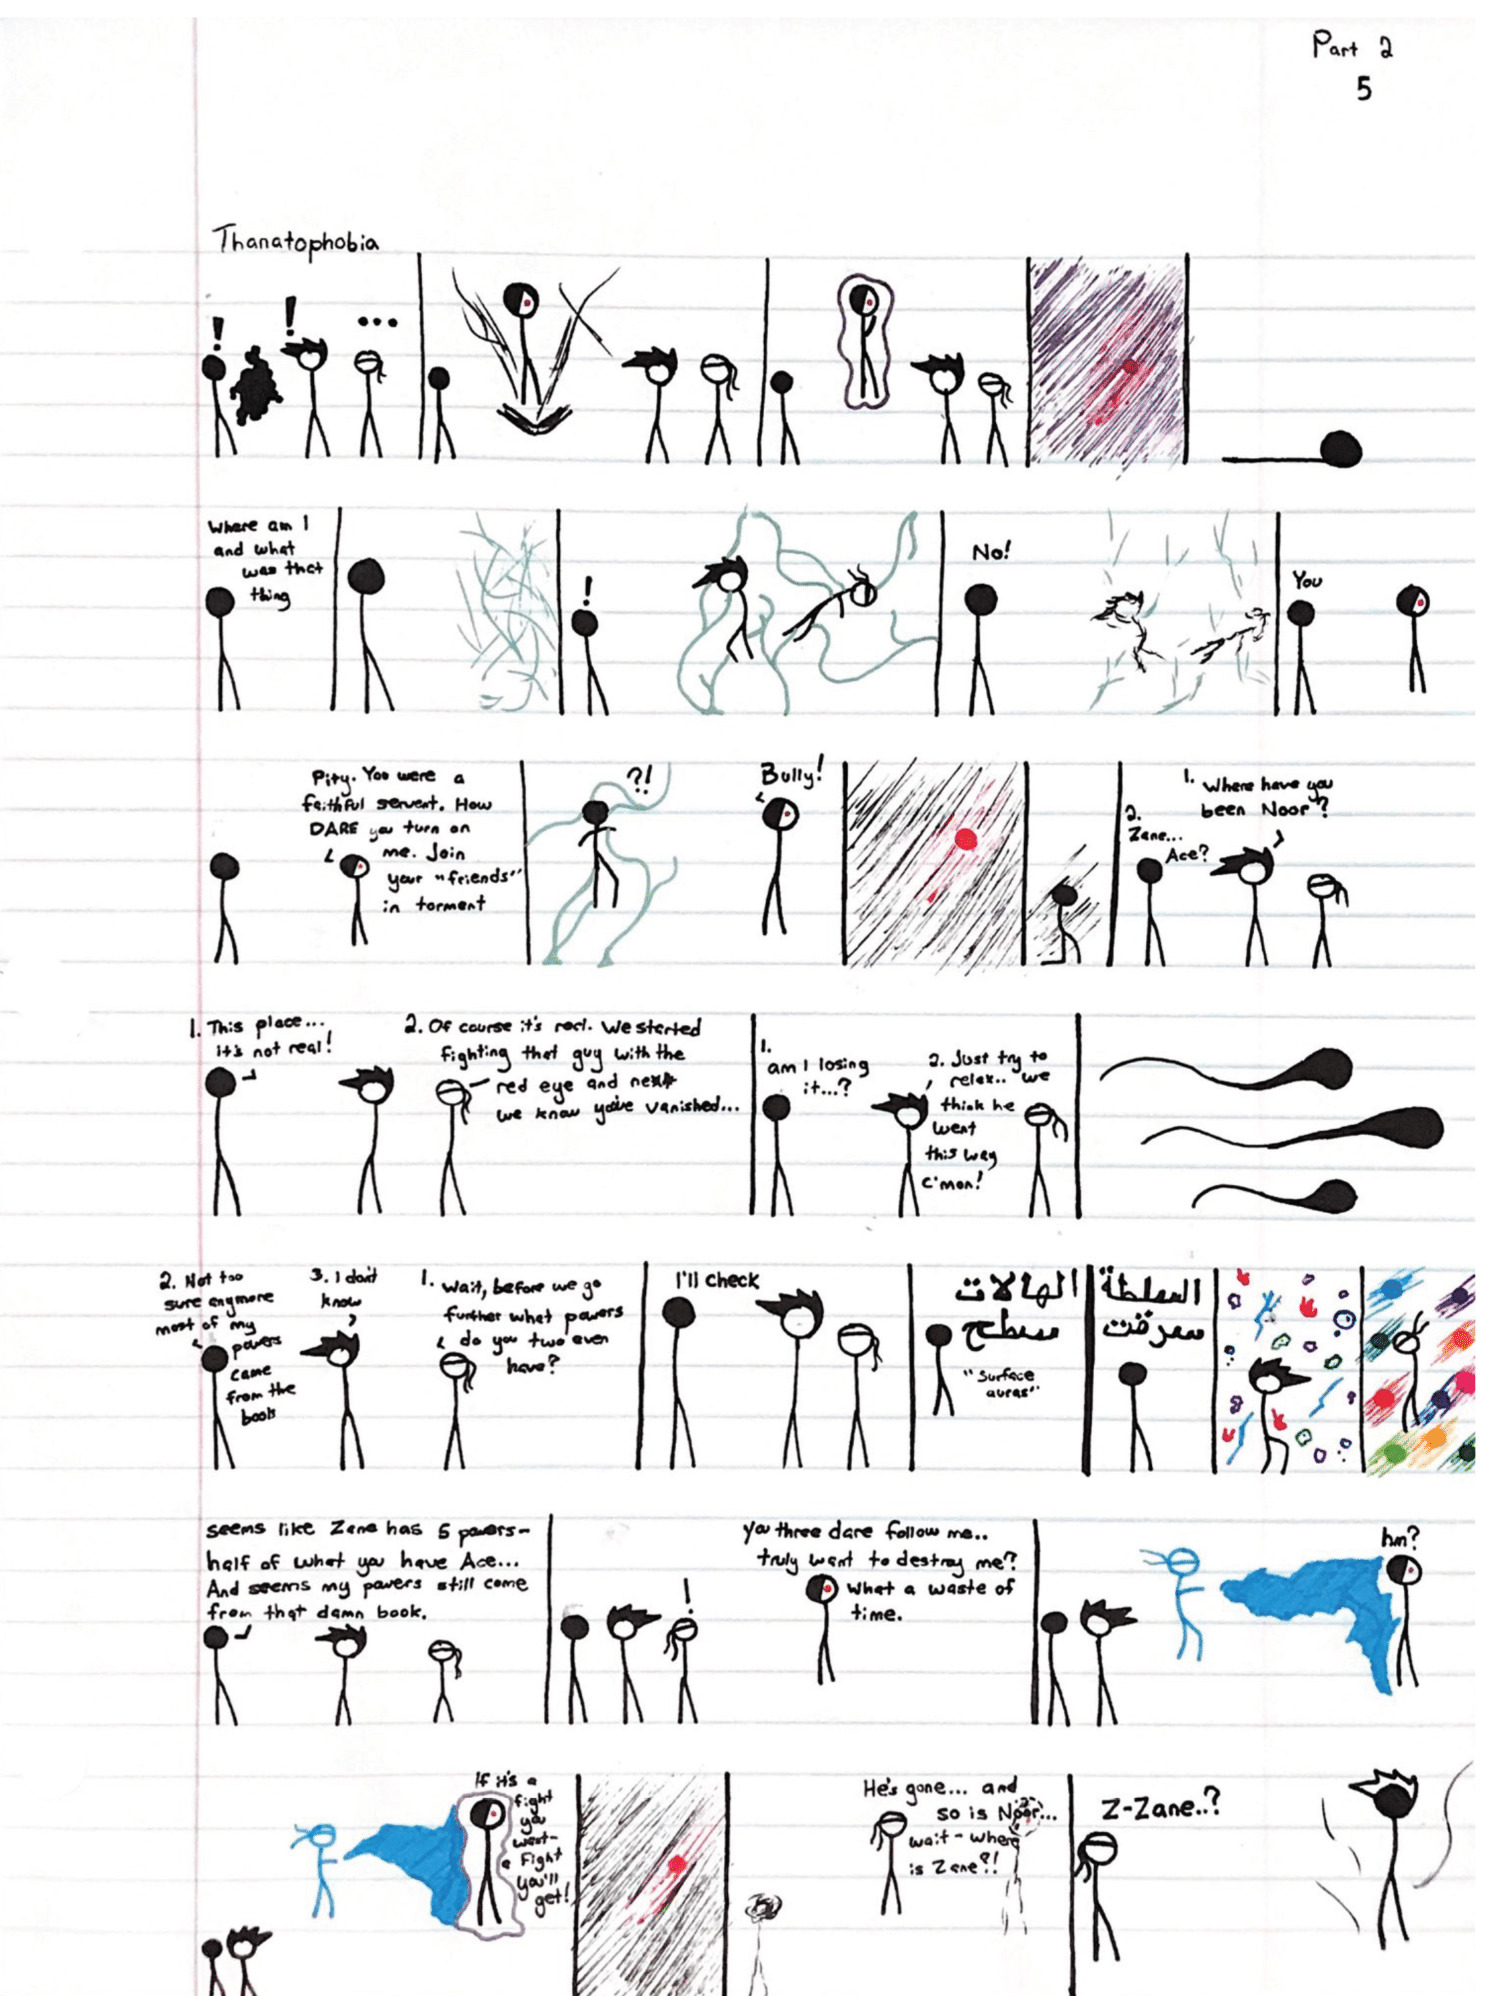 Part 2
5
Thanatophobia
!
!
...
Where am I
and what
was that
thing
!
No!
You
Pity. You were a
faithful servent. How
DARE you turn on
me. Join
your "friends"
in torment
?!
Bully!
1. Where have you
been Noor?
2.
Zane...
Ace?
1. This place...
it's not real!
2. Of course it's real. We started
fighting that guy with the
red eye and next
we know you've vanished...
1.
am I losing
it...?
2. Just try to
relax.. we
think he
went
this way
c'mon!
2. Not too
sure anymore
most of my
powers
came
from the
book
3. I don't
know
1. Wait, before we go
further what powers
do you two even
have?
I'll check
الهالات
سطح
"Surface
auras"
السلطة
معرفت
seems like Zane has 5 powers-
half of what you have Ace...
And seems my powers still come
from that damn book.
!
you three dare follow me..
truly want to destroy me?
What a waste of
time.
hm?
If it's a
fight
you
want-
a fight
you'll
get!
He's gone... and
so is Noor...
wait - where
is Zane?!
Z-Zane..?